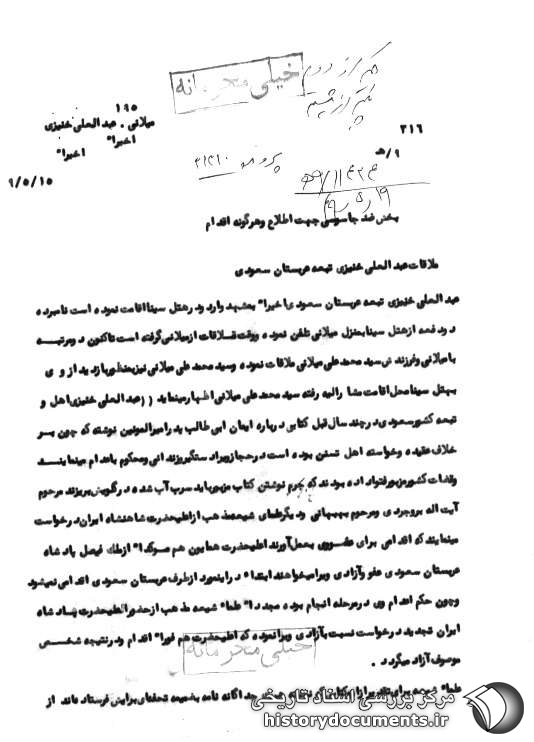 خیلی محرمانه
۱۹۵
میلانی . عبدالعلی خنیزی
اخیرا" اخیرا"
۳۱۶
۹/ه
۹/۵/۱۵
بخش ضد جاسوسی جهت اطلاع وهرگونه اقدام
ملاقات عبدالعلی خنیزی تبعه عربستان سعودی
عبدالعلی خنیزی تبعه عربستان سعودی اخیرا" بمشهد وارد ودر هتل سینا اقامت نموده است نامبرده
دو دفعه از هتل سینا بمنزل میلانی تلفن نموده ووقت ملاقات از میلانی گرفته است تاکنون دو مرتبه
با میلانی وفرزندش سید محمد علی میلانی ملاقات نموده وسید محمد علی میلانی نیز بمنظور بازدید از وی
بهتل سینا محل اقامت مشارالیه رفته سید محمد علی میلانی اظهار مینماید ((عبدالعلی خنیزی اهل و
تبعه کشور سعودی در چند سال قبل کتابی درباره ایمان ابی طالب پدر امیرالمومنین نوشته که چون بر
خلاف عقیده وخواسته اهل تسنن بوده است در حجاز ویرا دستگیر وزندانی ومحکوم باعدام مینمایند
وقضات کشور مزبور فتوا داده بودند که بجرم نوشتن کتاب مزبور باید سرب آب شده در گلویش بریزند مرحوم
آیت اله بروجردی ومرحوم بهبهانی ودیگر علمای شیعه مذهب از اعلیحضرت شاهنشاه ایران درخواست
مینمایند که اقدامی برای عفو وی بعمل آورند اعلیحضرت همایون هم موکدا" از ملک فیصل پادشاه
عربستان سعودی عفو وآزادی ویرا میخواهند ابتدا" در اینمورد از طرف عربستان سعودی اقدامی نمیشود
وچون حکم اعدام وی در مرحله انجام بوده مجددا" علما" شیعه مذهب از حضور اعلیحضرت پادشاه
ایران تجدید درخواست نسبت بآزادی ویرا نموده که اعلیحضرت هم فورا" اقدام ودر نتیجه شخص
موصوف آزاد میگردد .
خیلی محرمانه
علما" شیعه برای تقدیر از نامه بضمیمه تحفه‌ای برایش فرستاده‌اند از
مرکز بررسی اسناد تاریخی
historydocuments.ir